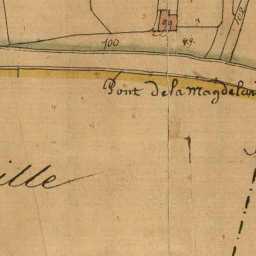 99
100
99
Pont de la Magdelai
ille